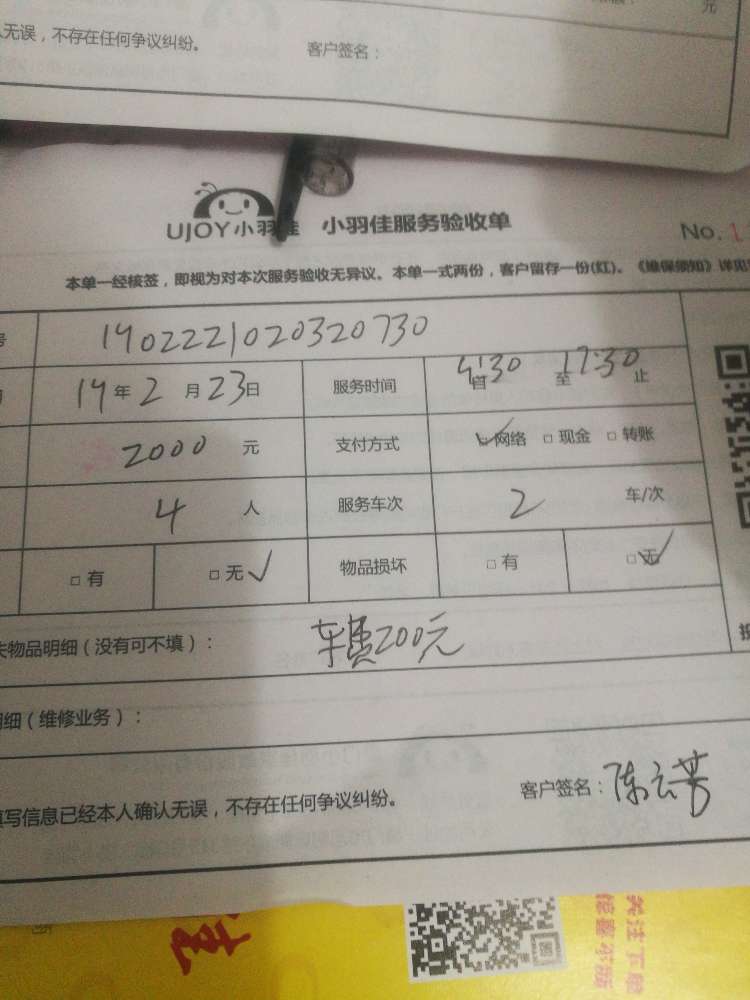 人无误，不存在任何争议纠纷。 客户签名：
元
UJOY小羽佳 小羽佳服务验收单
No. 1
本单一经核签，即视为对本次服务验收无异议。本单一式两份，客户留存一份(红)。《维保须知》详见
号 1902221020320730
19年2月23日 服务时间 :30 至 17:30 止
2000 元 支付方式 ☑网络 □现金 □转账
4 人 服务车次 2 车/次
□有 □无✓ 物品损坏 □有 ☑无
失物品明细（没有可不填）： 车费200元
明细（维修业务）：
填写信息已经本人确认无误，不存在任何争议纠纷。 客户签名：陈云芳
关注下单